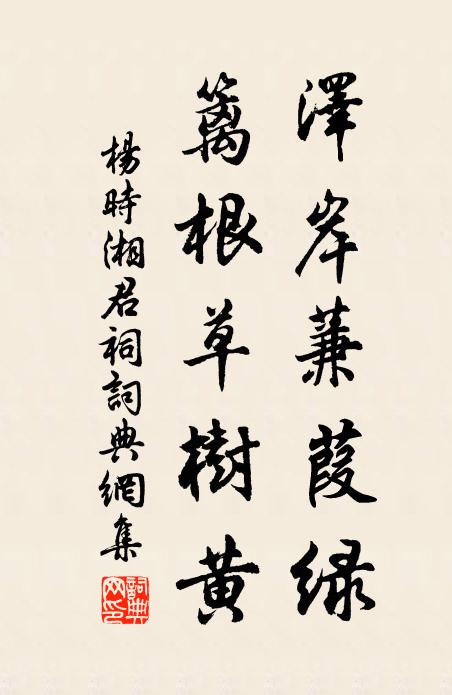 澤岸蒹葭綠
籬根草樹黃
楊時湘君祠詞典網集
詞典
网印